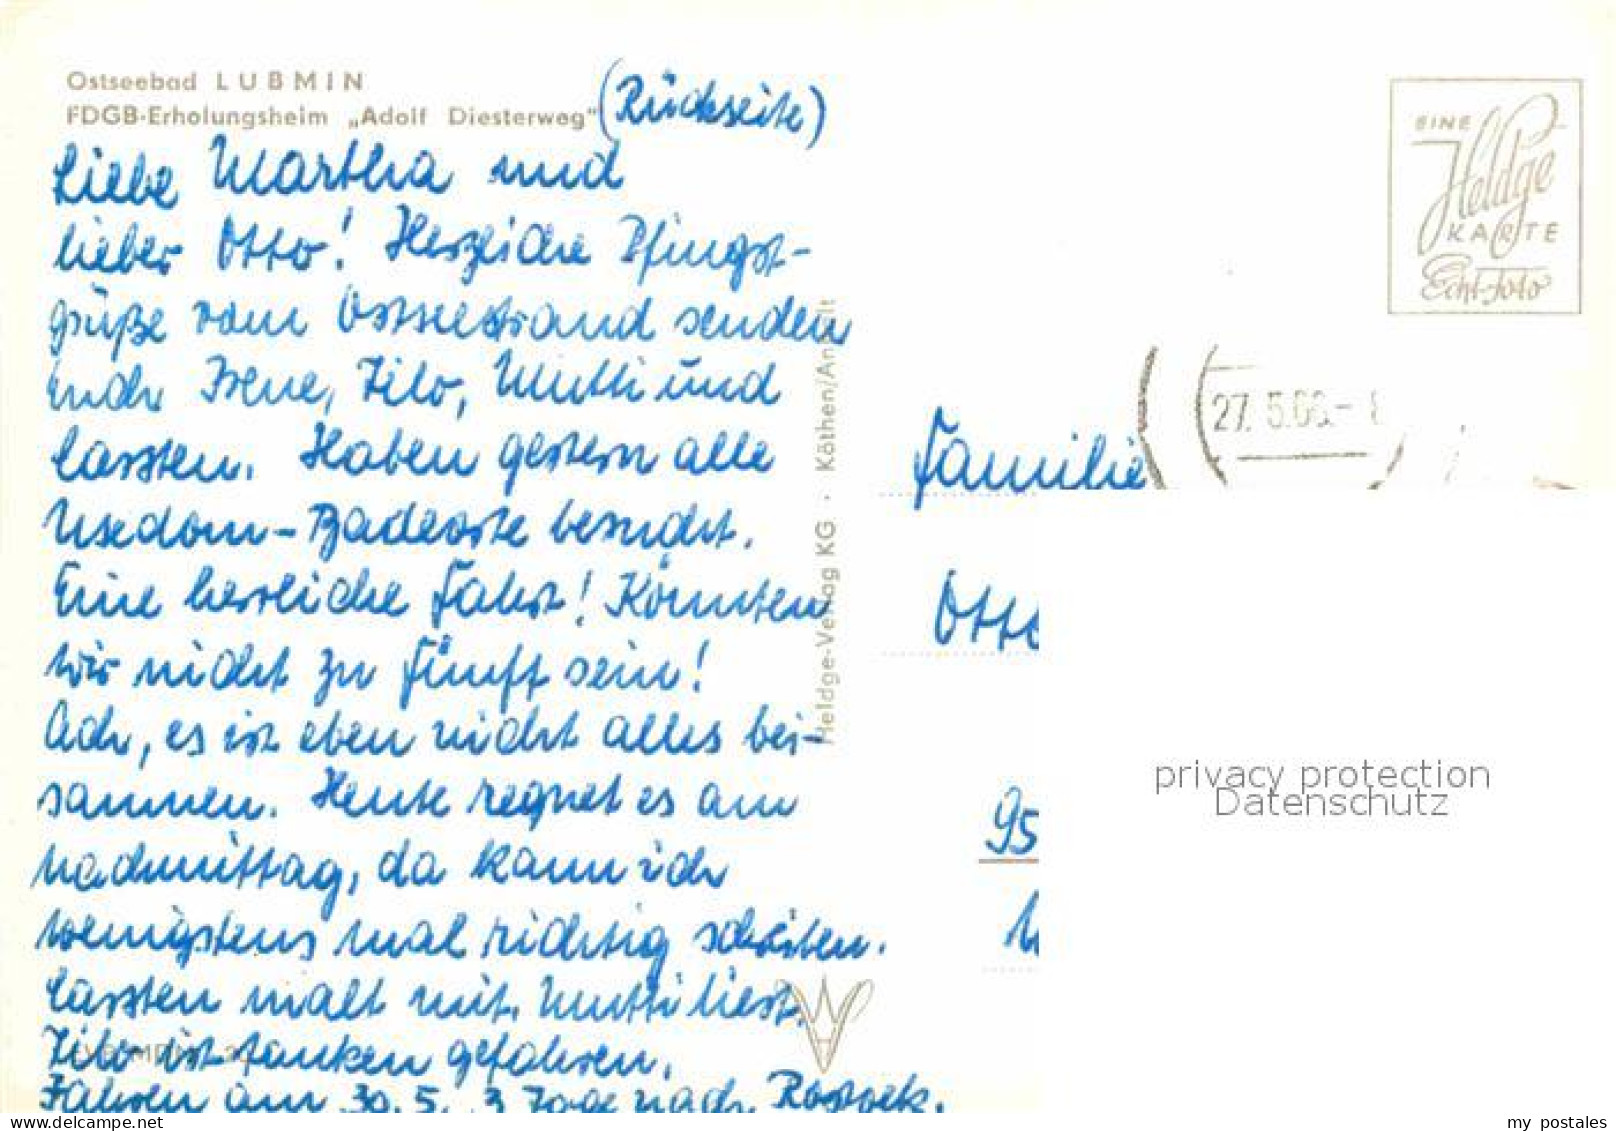 Ostseebad LUBMIN
FDGB-Erholungsheim „Adolf Diesterweg" (Rückseite)
Liebe Martha und
lieber Otto! Herzliche Pfingst-
grüße vom Ostseestrand senden
Euch Irene, Tilo, Mutti und
Carsten. Haben gestern alle
Usedom-Badeorte besucht.
Eine herrliche Fahrt! Könnten
wir nicht zu fünft sein!
Ach, es ist eben nicht alles bei-
sammen. Heute regnet es am
Nachmittag, da kann ich
wenigstens mal richtig schreiben.
Carsten malt mit. Mutti liest.
Tilo ist tanken gefahren.
Fahren am 30.5. 3 Tage nach Rostock.
Heldge-Verlag KG · Köthen/Anhalt
EINE
Heldge
KARTE
Echt-Foto
27.5.66.-8
Familie
Otto
95
privacy protection
Datenschutz
www.delcampe.net
my_postales